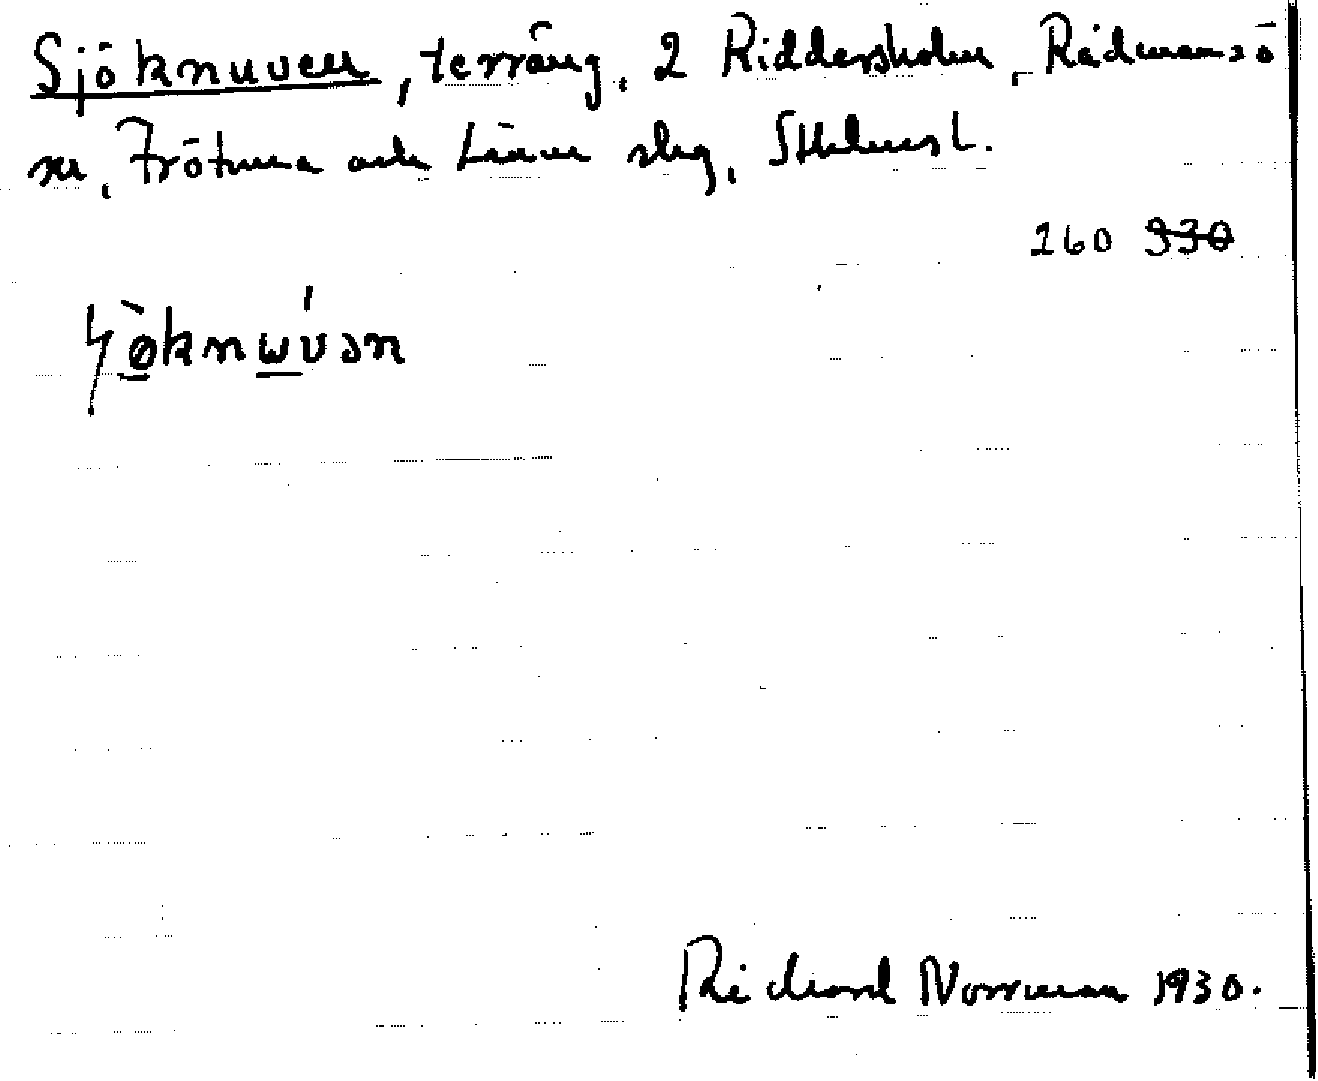 Sjöknuven, terräng, 2 Riddersholm, Rådmansö
sn, Frötuna och Länna slg, Sthlmsl.
260 930
Richard Norrman 1930.